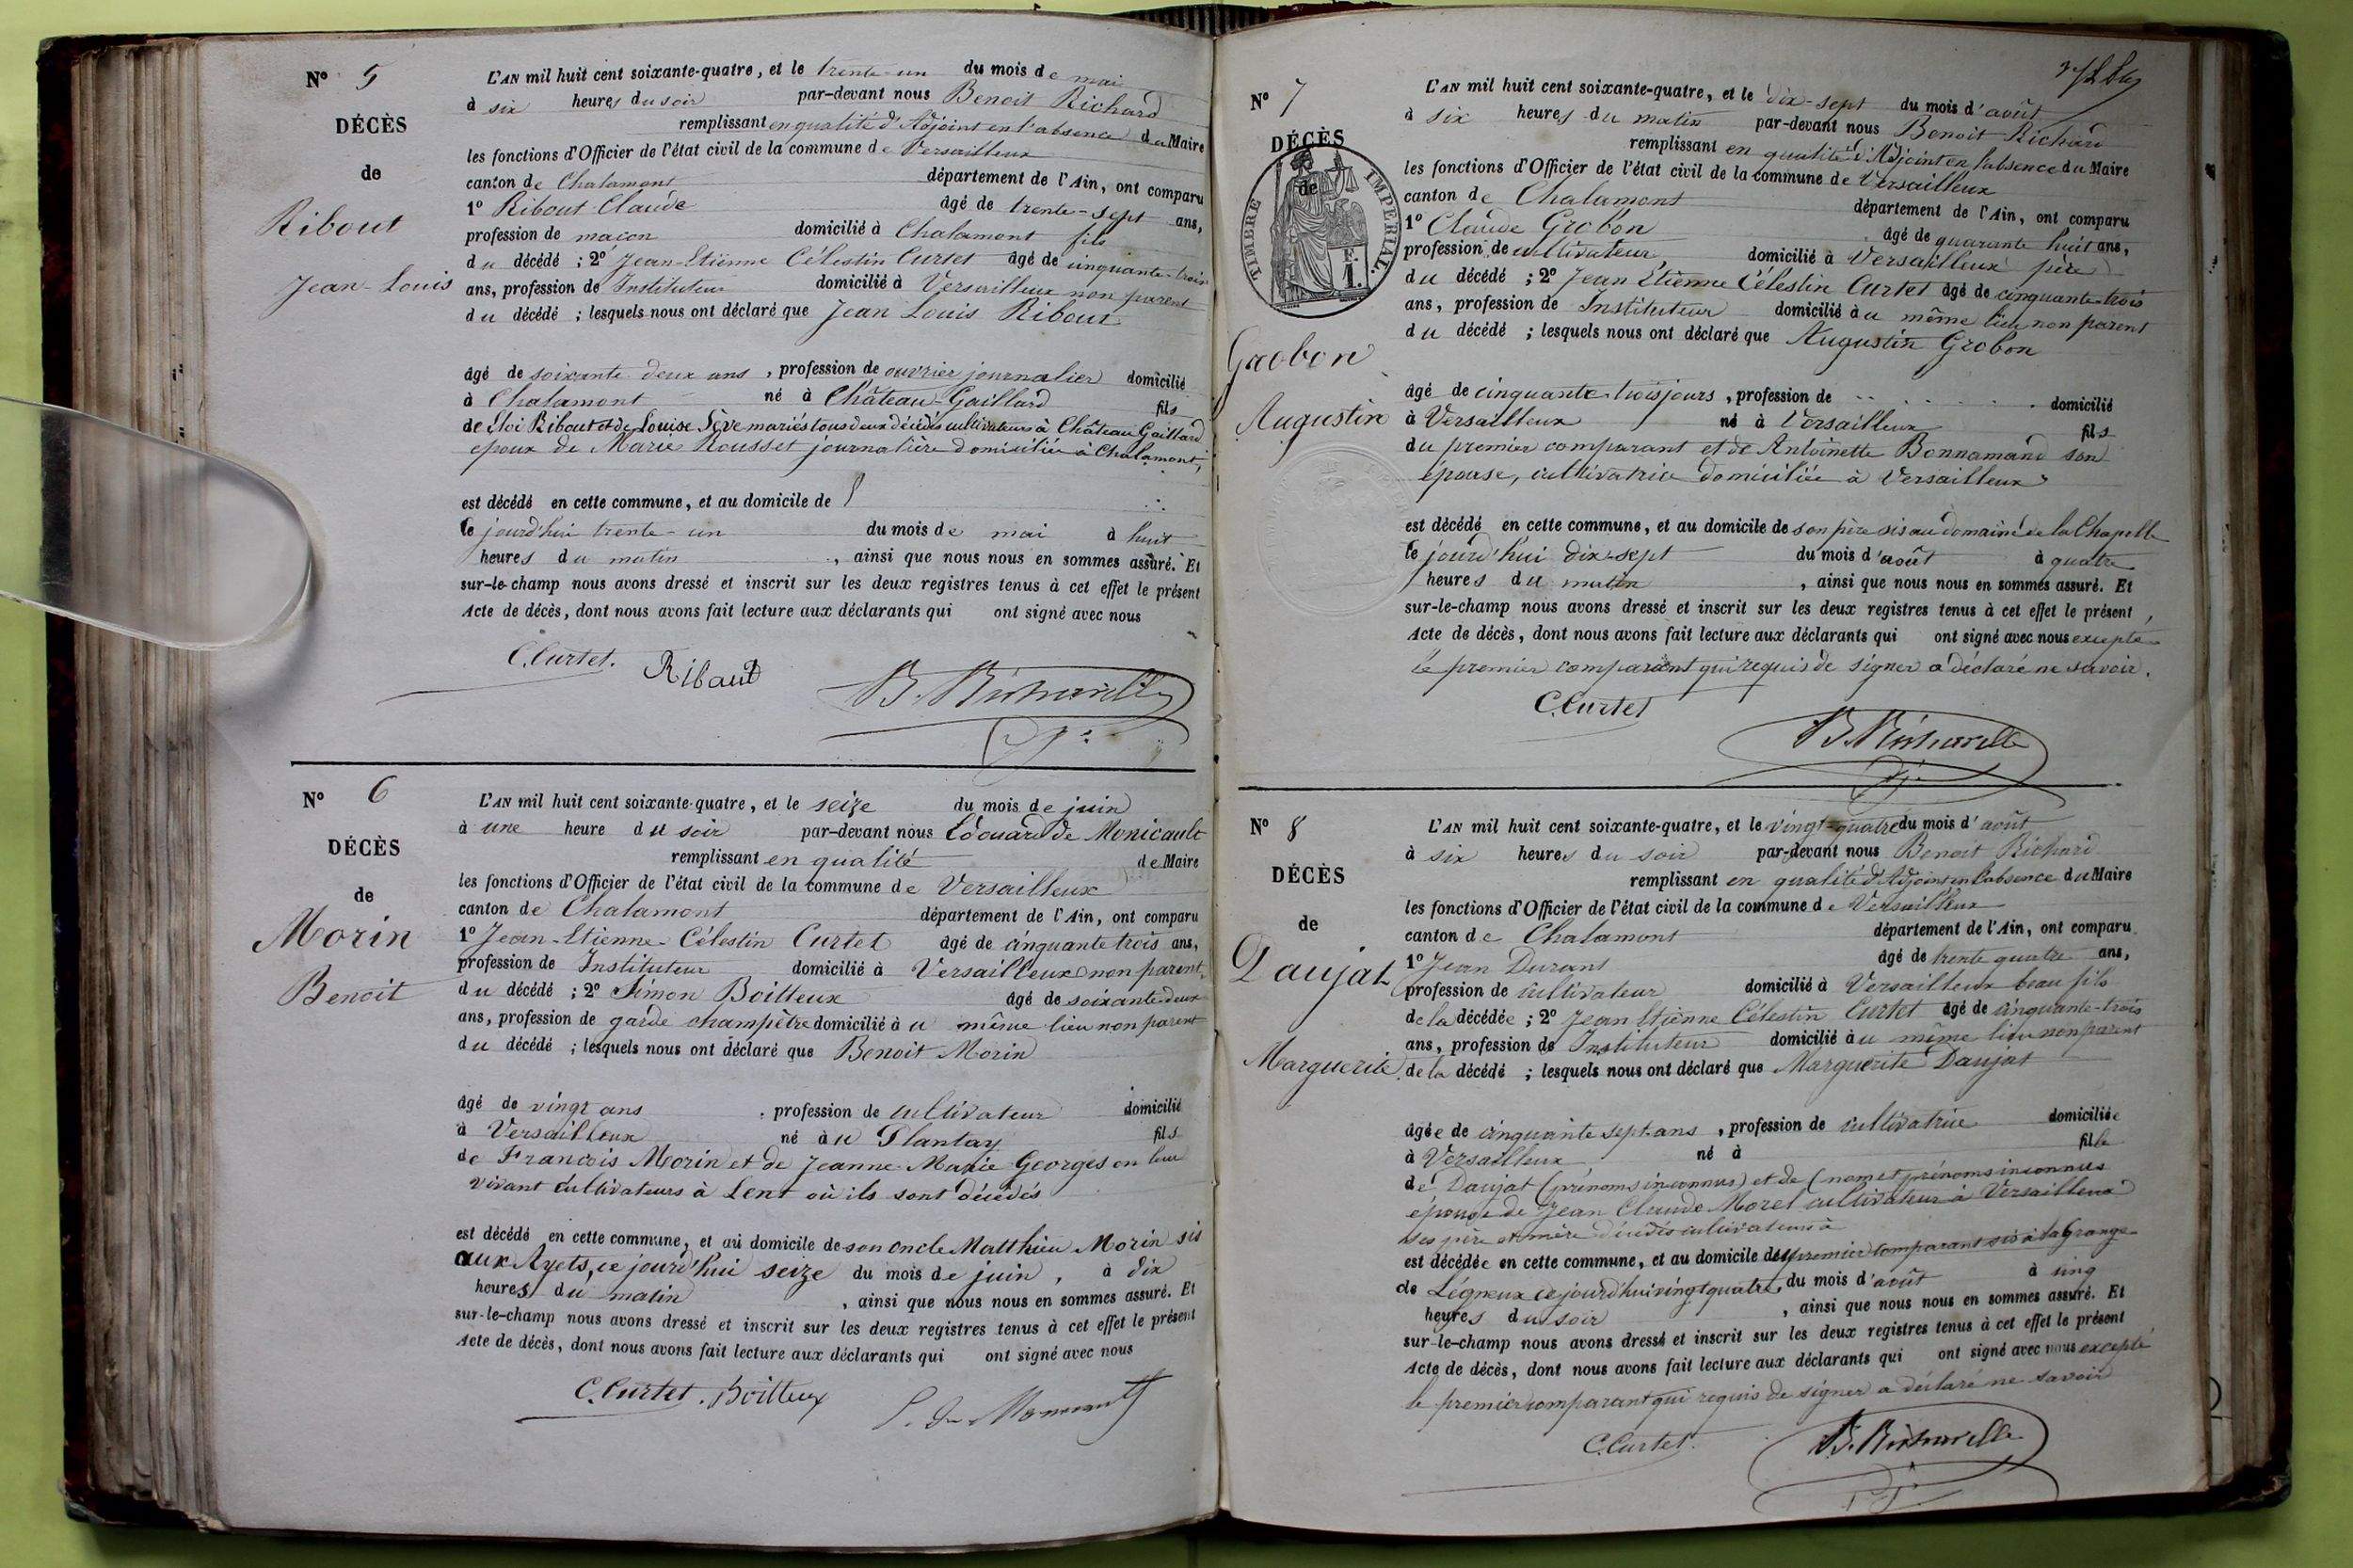 N° 5
DÉCÈS
de
Ribout
Jean-Louis
L'AN mil huit cent soixante-quatre, et le trente-un du mois de mai
à six heures du soir par-devant nous Benoit Richard
remplissant en qualité d'Adjoint en l'absence du Maire
les fonctions d'Officier de l'état civil de la commune de Versailleux
canton de Chalamont département de l'Ain, ont comparu
1° Ribout Claude âgé de trente-sept ans,
profession de maçon domicilié à Chalamont fils
du décédé ; 2° Jean-Etienne Célestin Curtet âgé de cinquante-trois
ans, profession de Instituteur domicilié à Versailleux non parent
du décédé ; lesquels nous ont déclaré que Jean Louis Ribout
âgé de soixante deux ans, profession de ouvrier journalier domicilié
à Chalamont né à Château-Gaillard fils
de Eloi Ribout et de Louise Sève mariés tous deux décédés cultivateurs à Château Gaillard
époux de Marie Rousset journalière domiciliée à Chalamont,
est décédé en cette commune, et au domicile de
ce jourd'hui trente-un du mois de mai à huit
heures du matin, ainsi que nous nous en sommes assuré. Et
sur-le-champ nous avons dressé et inscrit sur les deux registres tenus à cet effet le présent
Acte de décès, dont nous avons fait lecture aux déclarants qui ont signé avec nous
C. Curtet. Ribaut B. Richard
N° 6
DÉCÈS
de
Morin
Benoit
L'AN mil huit cent soixante-quatre, et le seize du mois de juin
à une heure du soir par-devant nous Edouard de Monicault
remplissant en qualité de Maire
les fonctions d'Officier de l'état civil de la commune de Versailleux
canton de Chalamont département de l'Ain, ont comparu
1° Jean-Etienne-Célestin Curtet âgé de cinquante trois ans,
profession de Instituteur domicilié à Versailleux non parent
du décédé ; 2° Simon Boilleux âgé de soixante deux
ans, profession de garde champêtre domicilié au même lieu non parent
du décédé ; lesquels nous ont déclaré que Benoit Morin
âgé de vingt ans, profession de cultivateur domicilié
à Versailleux né au Plantay fils
de François Morin et de Jeanne-Marie Georges en leur
vivant cultivateurs à Lent où ils sont décédés
est décédé en cette commune, et au domicile de son oncle Matthieu Morin sis
aux Ayets, ce jourd'hui seize du mois de juin, à dix
heures du matin, ainsi que nous nous en sommes assuré. Et
sur-le-champ nous avons dressé et inscrit sur les deux registres tenus à cet effet le présent
Acte de décès, dont nous avons fait lecture aux déclarants qui ont signé avec nous
C. Curtet. Boilleux
N° 7
DÉCÈS
de
TIMBRE IMPÉRIAL.
F.
1.
Grobon
Augustin
L'AN mil huit cent soixante-quatre, et le dix-sept du mois d'août
à six heures du matin par-devant nous Benoit Richard
remplissant en qualité d'Adjoint en l'absence du Maire
les fonctions d'Officier de l'état civil de la commune de Versailleux
canton de Chalamont département de l'Ain, ont comparu
1° Claude Grobon âgé de quarante huit ans,
profession de cultivateur, domicilié à Versailleux père
du décédé ; 2° Jean Etienne Célestin Curtet âgé de cinquante-trois
ans, profession de Instituteur domicilié au même lieu non parent
du décédé ; lesquels nous ont déclaré que Augustin Grobon
âgé de cinquante-trois jours, profession de domicilié
à Versailleux né à Versailleux fils
du premier comparant et de Antoinette Bonnamand son
épouse, cultivatrice domiciliée à Versailleux
est décédé en cette commune, et au domicile de son père sis au domaine de la Chapelle
ce jourd'hui dix-sept du mois d'août à quatre
heures du matin, ainsi que nous nous en sommes assuré. Et
sur-le-champ nous avons dressé et inscrit sur les deux registres tenus à cet effet le présent
Acte de décès, dont nous avons fait lecture aux déclarants qui ont signé avec nous excepté
le premier comparant qui requis de signer a déclaré ne savoir.
C. Curtet B. Richard
N° 8
DÉCÈS
de
Daujat
Marguerite
L'AN mil huit cent soixante-quatre, et le vingt-quatre du mois d'août
à six heures du soir par-devant nous Benoit Richard
remplissant en qualité d'Adjoint en l'absence du Maire
les fonctions d'Officier de l'état civil de la commune de Versailleux
canton de Chalamont département de l'Ain, ont comparu
1° Jean Durant âgé de trente quatre ans,
profession de cultivateur domicilié à Versailleux beau fils
de la décédée ; 2° Jean Etienne Célestin Curtet âgé de cinquante-trois
ans, profession de Instituteur domicilié au même lieu non parent
de la décédé ; lesquels nous ont déclaré que Marguerite Daujat
âgée de cinquante sept ans, profession de cultivatrice domiciliée
à Versailleux né à fille
de Daujat (prénoms inconnus) et de (nom et prénoms inconnus
épouse de Jean Claude Morel cultivateur à Versailleux
ses père et mère décédés cultivateurs à
est décédée en cette commune, et au domicile du premier comparant sis à la Grange
de Légneux ce jourd'hui vingt quatre du mois d'août à cinq
heures du soir, ainsi que nous nous en sommes assuré. Et
sur-le-champ nous avons dressé et inscrit sur les deux registres tenus à cet effet le présent
Acte de décès, dont nous avons fait lecture aux déclarants qui ont signé avec nous excepté
le premier comparant qui requis de signer a déclaré ne savoir
C. Curtet. B. Richard